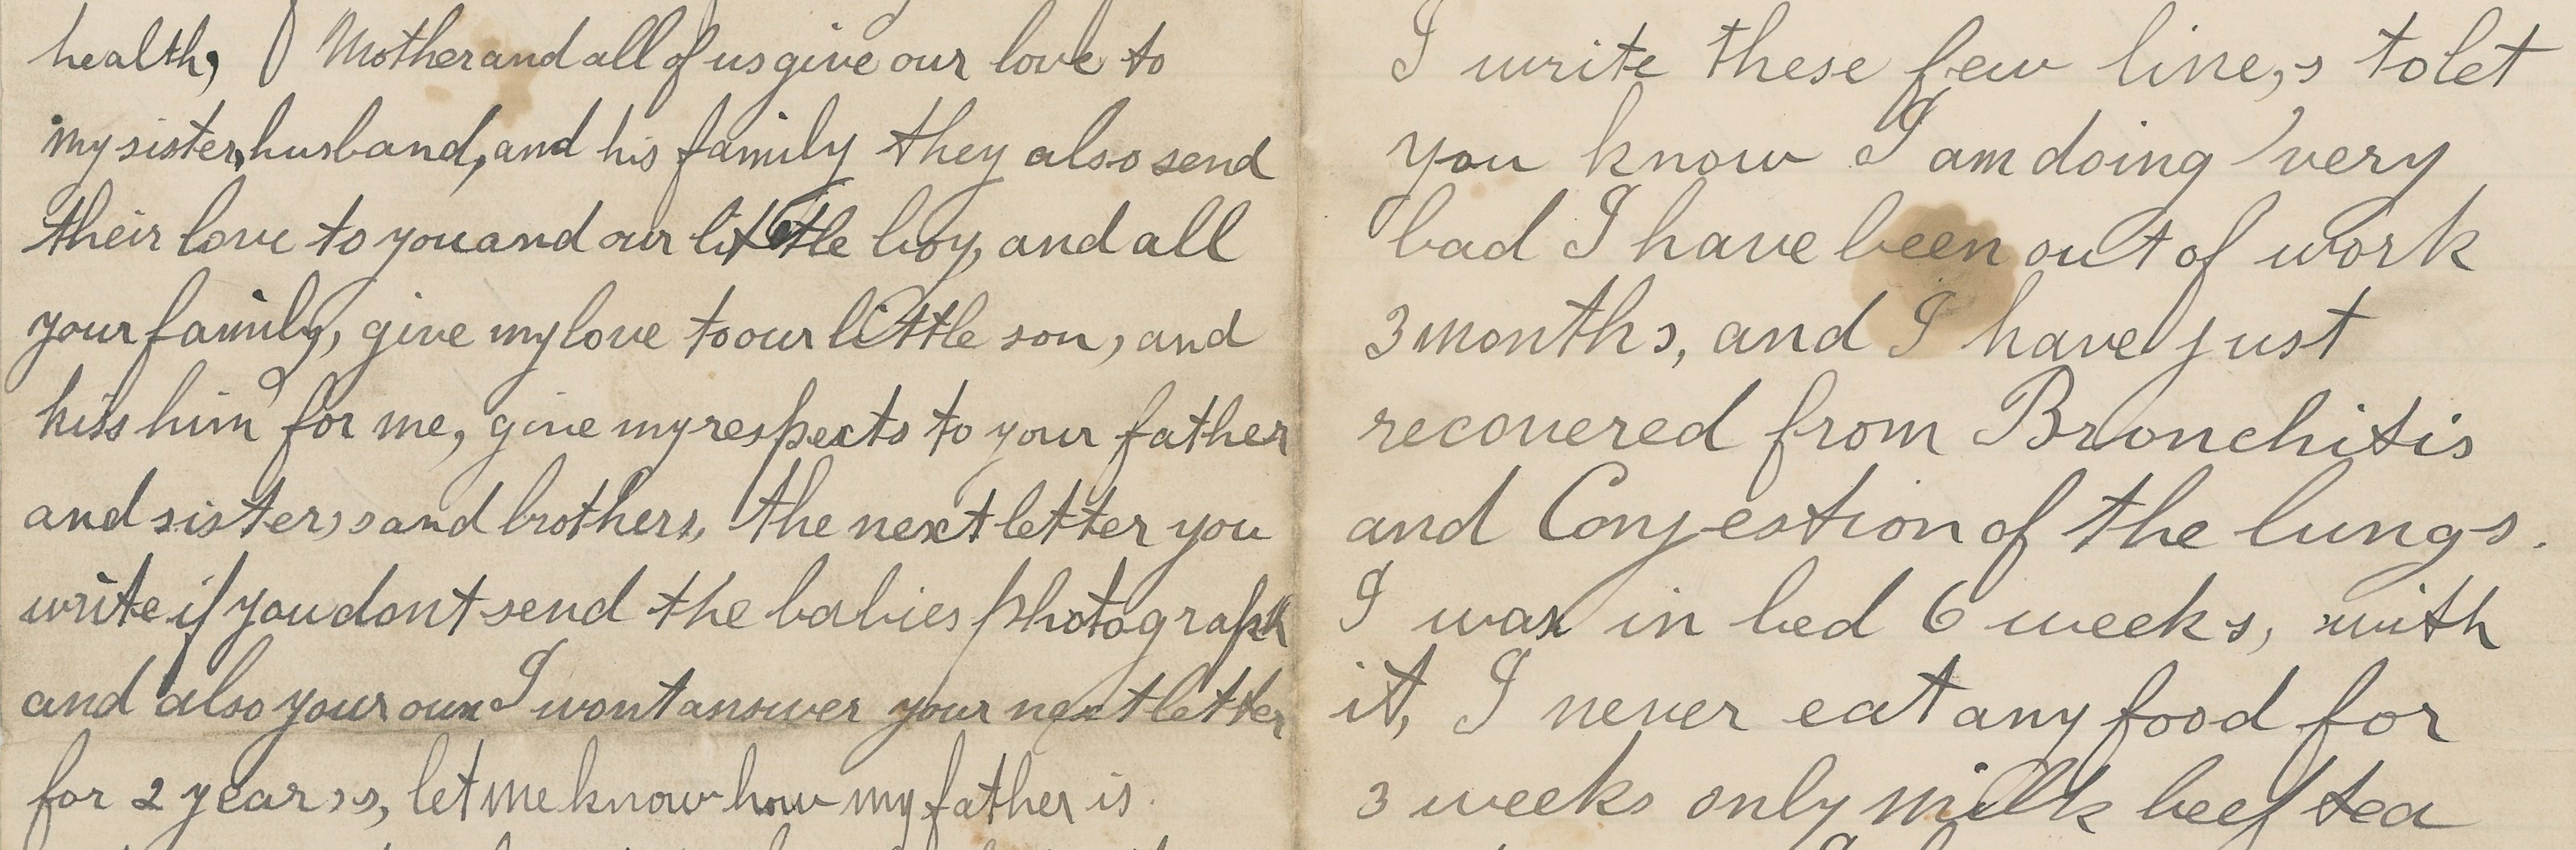 health, Mother and all of us give our love to
my sister, husband, and his family they also send
their love to you and our little boy, and all
your family, give my love to our little son, and
kiss him for me, give my respects to your father
and sister,s and brothers, the next letter you
write if you dont send the babies photograph
and also your own I wont answer your next letter
for 2 year,s, let me know how my father is.
I write these few line,s to let
you know I am doing very
bad I have been out of work
3 months, and I have just
recovered from Bronchitis
and Conjestion of the lungs.
I was in bed 6 weeks, with
it, I never eat any food for
3 weeks only milk beef tea